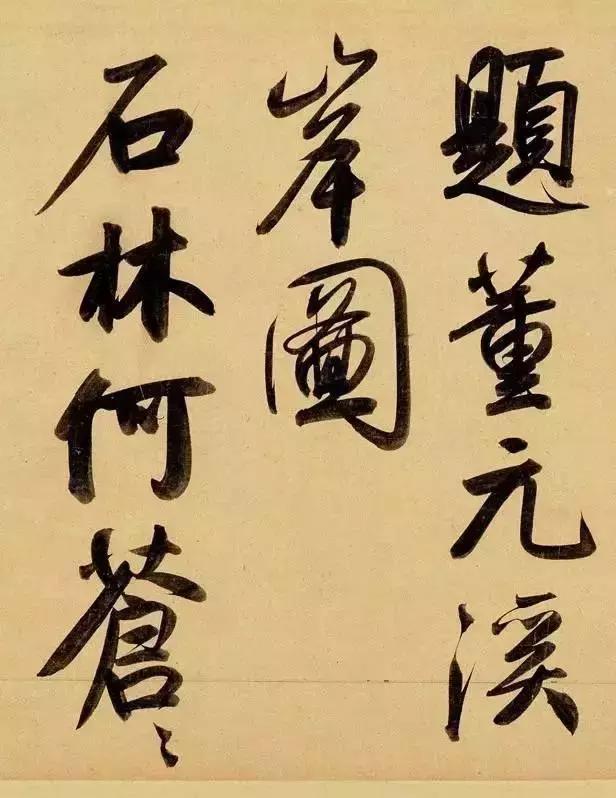 題董元溪
岸圖
石林何蒼〻